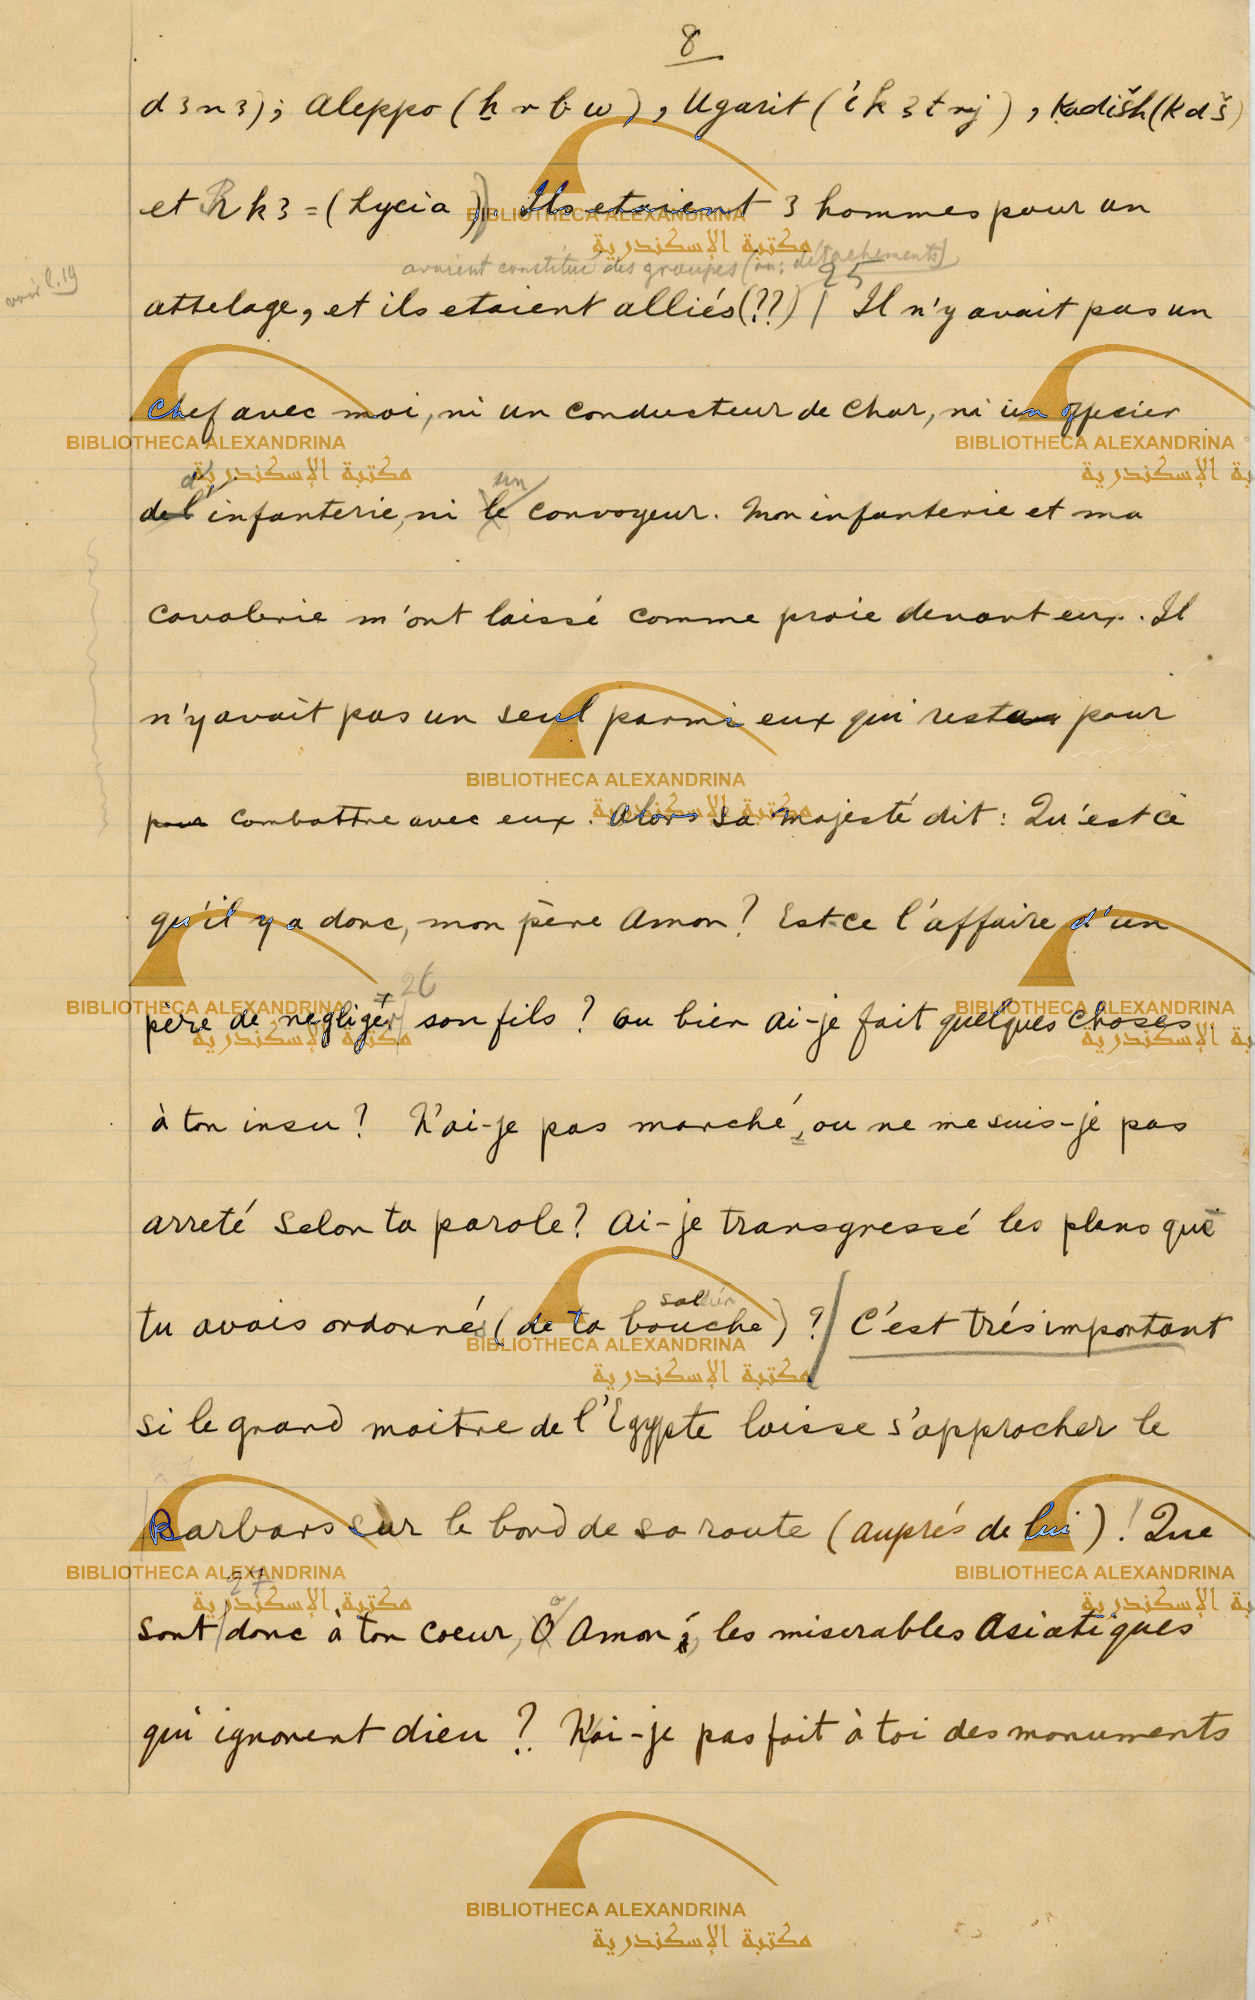 8
d3n3); Aleppo (ẖrbw), Ugarit (ỉk3trj), Kadišh (Kdš)
et Rk3 = (Lycia). Ils etaient 3 hommes pour un
avaient constitué des groupes (ou: détachements)
voir l. 19
25
attelage, et ils etaient alliés (??) / Il n'y avait pas un
chef avec moi, ni un conducteur de char, ni un officier
d' un
del' infanterie, ni le convoyeur. Mon infanterie et ma
cavalerie m'ont laissé comme proie devant eux. Il
n'y avait pas un seul parmi eux qui resta pour
pour combattre avec eux. Alors sa majesté dit: Qu'est ce
qu'il y a donc, mon père Amon? Est-ce l'affaire d'un
26
père de negligér / son fils? ou bien ai-je fait quelques choses
à ton insu? N'ai-je pas marché, ou ne me suis-je pas
arreté selon ta parole? Ai-je transgressé les plans que
tu avais ordonnés (de ta bouche)? / C'est trés important
si le grand maitre de l'Egypte laisse s'approcher le
Barbars sur le bord de sa route (auprés de lui)! Que
27
sont / donc à ton coeur, O Amon, les miserables Asiatiques
qui ignorent dieu? N'ai-je pas fait à toi des monuments
BIBLIOTHECA ALEXANDRINA
مكتبة الإسكندرية